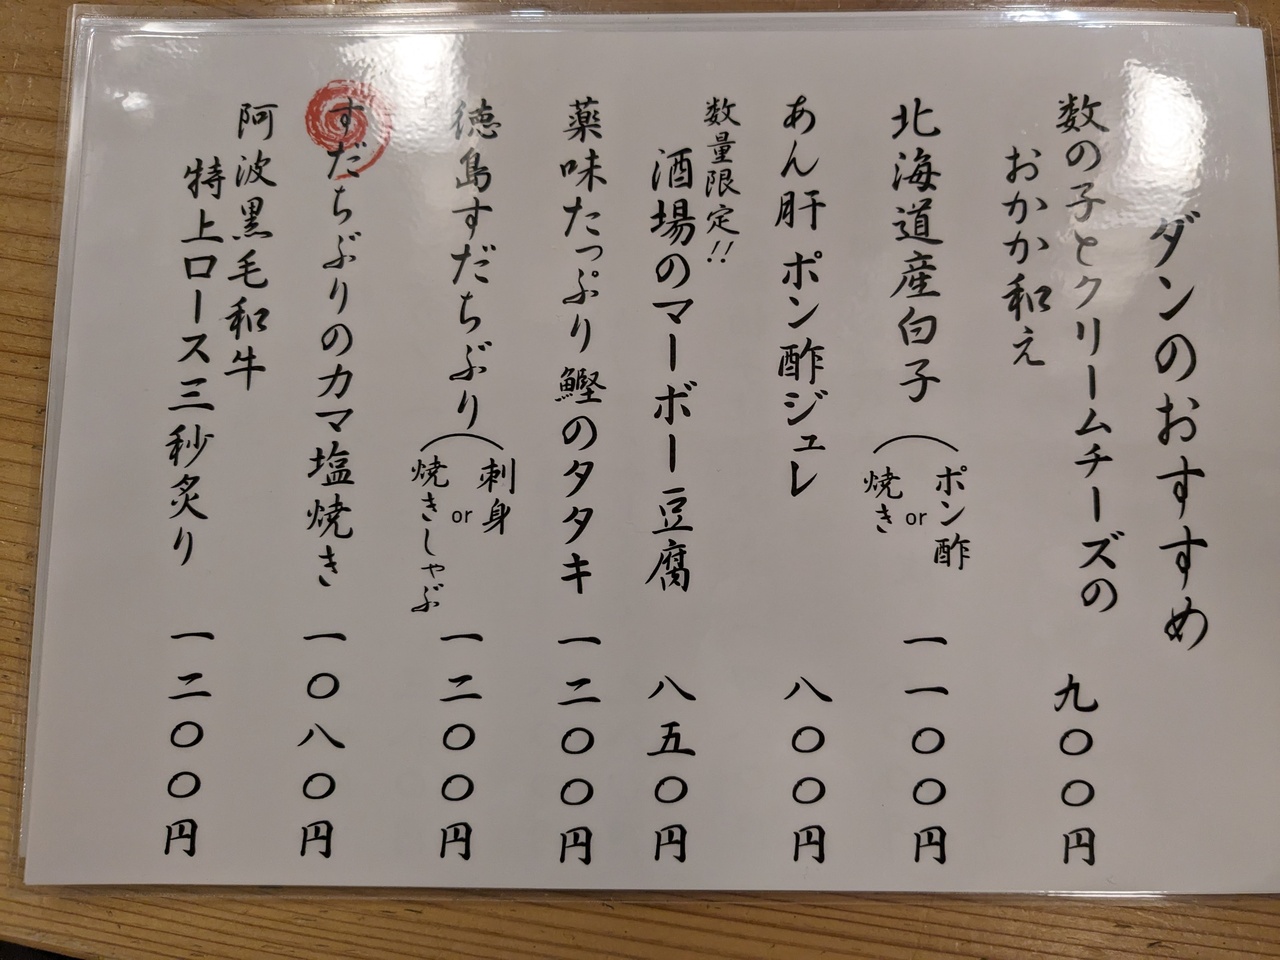 ダンのおすすめ
数の子とクリームチーズの
おかか和え
九〇〇円
北海道産白子
ポン酢
or
焼き
一一〇〇円
あん肝 ポン酢ジュレ
八〇〇円
数量限定!!
酒場のマーボー豆腐
八五〇円
薬味たっぷり鰹のタタキ
一二〇〇円
徳島すだちぶり
刺身
or
焼きしゃぶ
一二〇〇円
すだちぶりのカマ塩焼き
一〇八〇円
阿波黒毛和牛
特上ロース三秒炙り
一二〇〇円